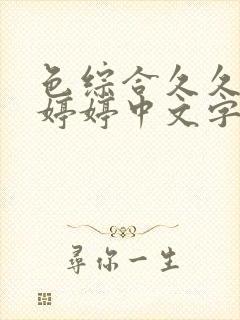 色综合久久
婷婷中文字
尋你一生